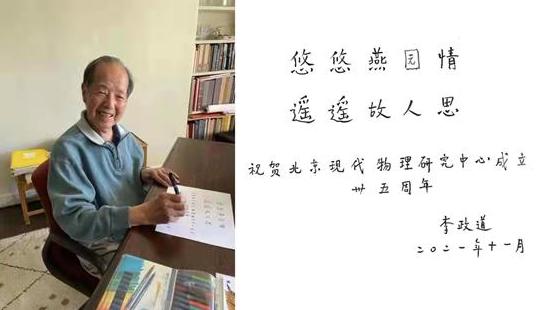 悠悠燕园情
遥遥故人思
祝贺北京现代物理研究中心成立
卅五周年
李政道
二〇二一年十一月